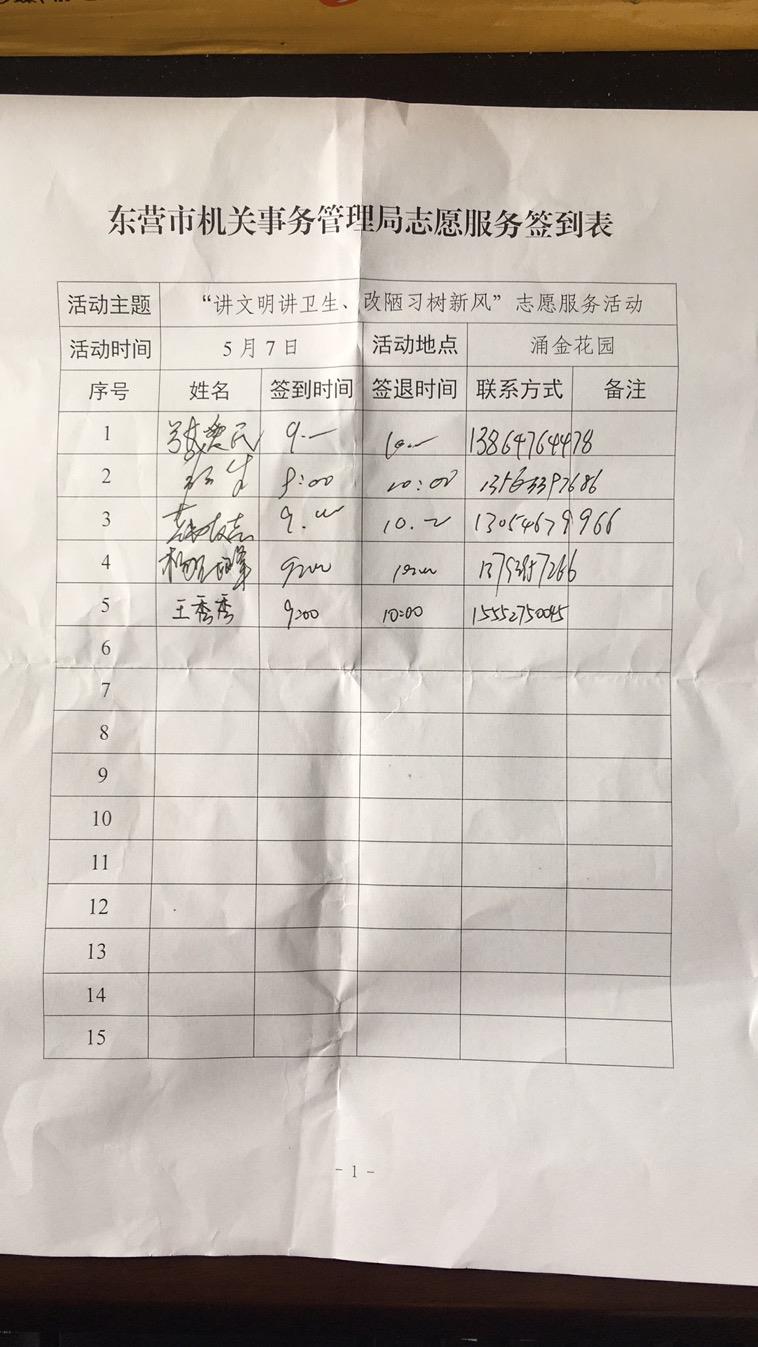 东营市机关事务管理局志愿服务签到表
活动主题 “讲文明讲卫生、改陋习树新风”志愿服务活动
活动时间 5月7日 活动地点 涌金花园
序号 姓名 签到时间 签退时间 联系方式 备注
1 13864764478
2 10:00
3 13054679966
4
5 王秀秀 9:00 10:00 15552750045
6
7
8
9
10
11
12
13
14
15
- 1 -